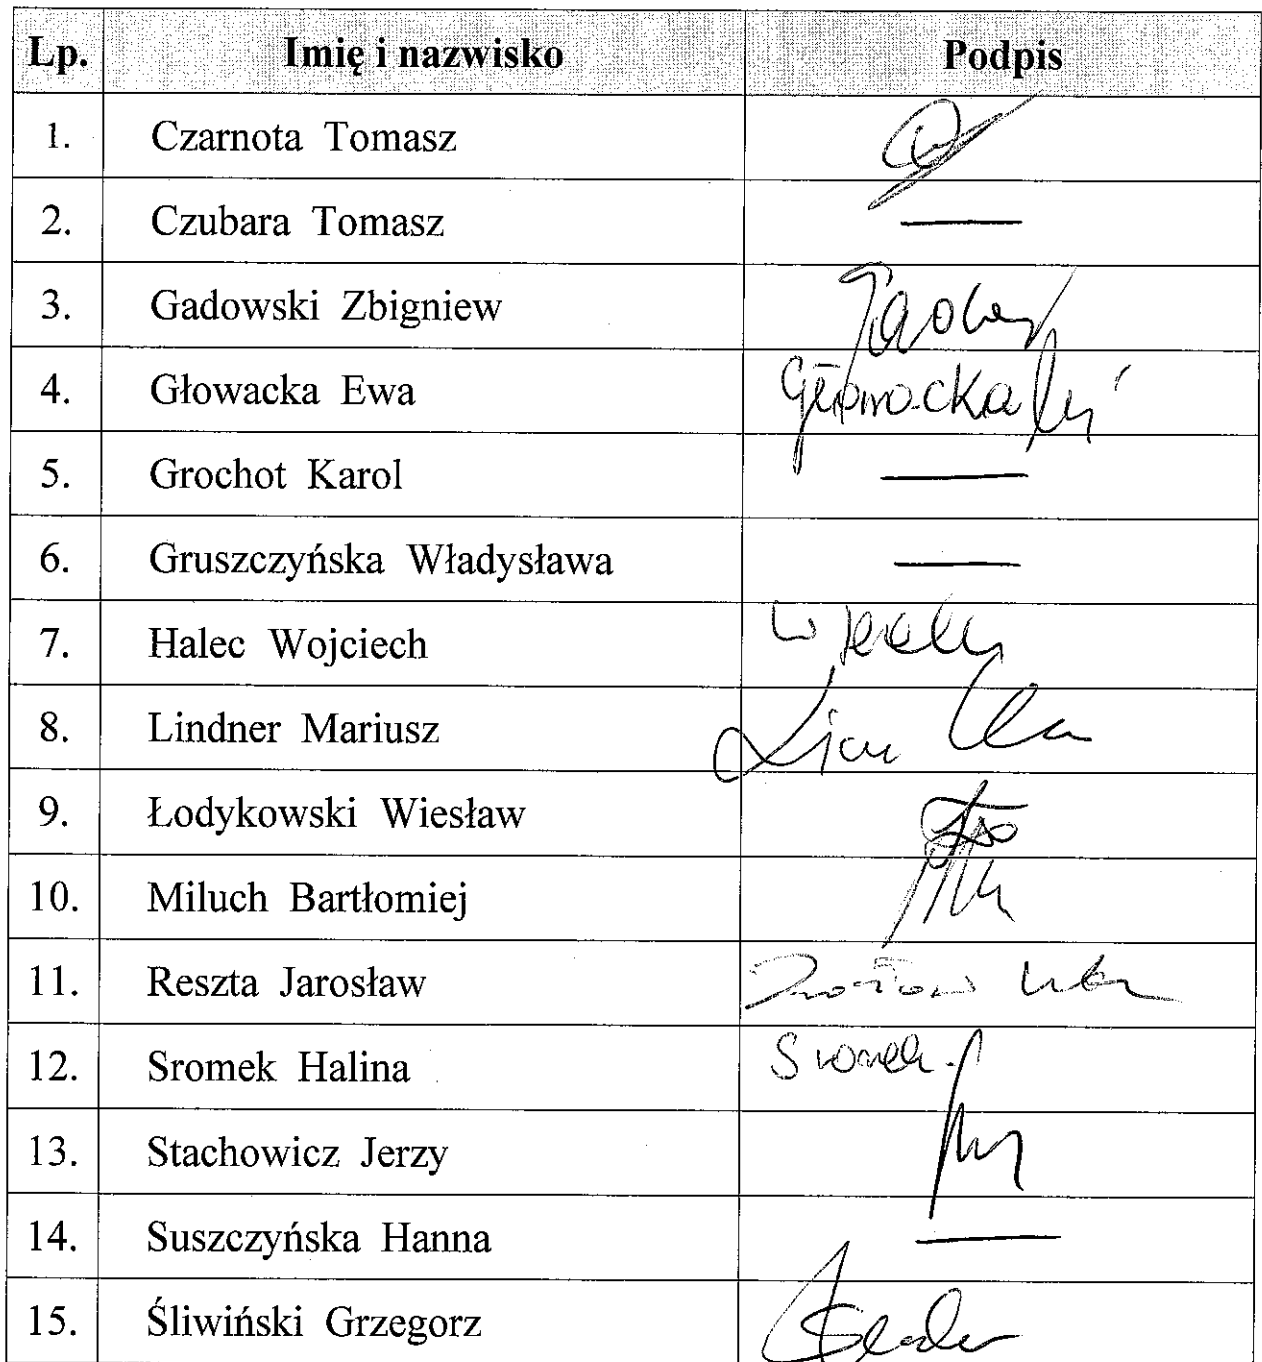 Lp. Imię i nazwisko Podpis
1. Czarnota Tomasz
2. Czubara Tomasz —
3. Gadowski Zbigniew
4. Głowacka Ewa Głowacka
5. Grochot Karol —
6. Gruszczyńska Władysława —
7. Halec Wojciech
8. Lindner Mariusz
9. Łodykowski Wiesław
10. Miluch Bartłomiej
11. Reszta Jarosław
12. Sromek Halina Sromek
13. Stachowicz Jerzy
14. Suszczyńska Hanna —
15. Śliwiński Grzegorz